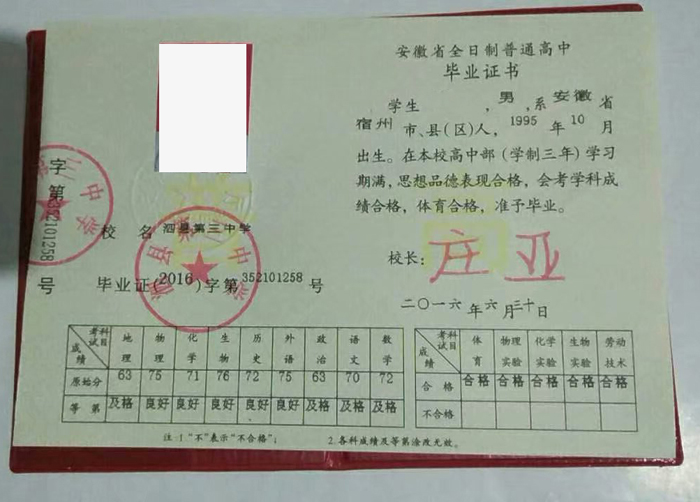 安徽省全日制普通高中
毕业证书
学生 ，男，系安徽省
宿州市、县(区)人，1995年10月
出生。在本校高中部（学制三年）学习
期满，思想品德表现合格，会考学科成
绩合格，体育合格，准予毕业。
校长：庄亚
二〇一六年六月三十日
字第352101258号
校名 泗县第三中学
毕业证(2016)字第352101258号
考试科目 地理 物理 化学 生物 历史 外语 政治 语文 数学
成绩
原始分 63 75 71 76 72 75 63 70 72
等第 及格 良好 良好 良好 良好 良好 及格 及格 及格
考试科目 体育 物理实验 化学实验 生物实验 劳动技术
成绩
合格 合格 合格 合格 合格 合格
不合格
注：1."不"表示"不合格"； 2.各科成绩及等第涂改无效。